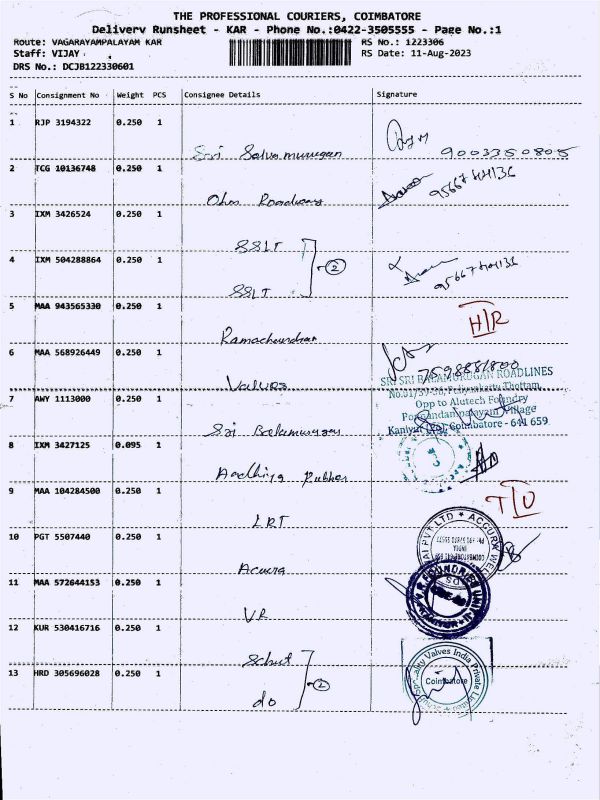 THE PROFESSIONAL COURIERS, COIMBATORE
Delivery Runsheet - KAR - Phone No.:0422-3505555 - Page No.:1
Route: VAGARAYAMPALAYAM KAR
RS No.: i223306
Staff: VIJAY
RS Date: 11-Aug-2023
DRS No.: DCJB122330601
S No Consignment No Weight PCS Consignee Details Signature
1 RJP 3194322 0.250 1
Sri Selvamurugan 9003350805
2 TCG 10136748 0.250 1
Ohm Roadways
3 IXM 3426524 0.250 1
SSLT
4 IXM 504288864 0.250 1
2
SSLT
5 MAA 943565330 0.250 1
Ramachandran H/R
6 MAA 568926449 0.250 1
Values 7598881800
SRI SRI BALAMURUGAN ROADLINES
7 AWY 1113000 0.250 1
Opp to Alutech Foundry
Village
Sri Balamurugan
Coimbatore - 641 659
8 IXM 3427125 0.095 1
Aadhiya Rubber
9 MAA 104284500 0.250 1
LRT T/O
10 PGT 5507440 0.250 1
Acura
11 MAA 572644153 0.250 1
VR
12 KUR 530416716 0.250 1
13 HRD 305696028 0.250 1
2
do
Valves India Private
Coimbatore